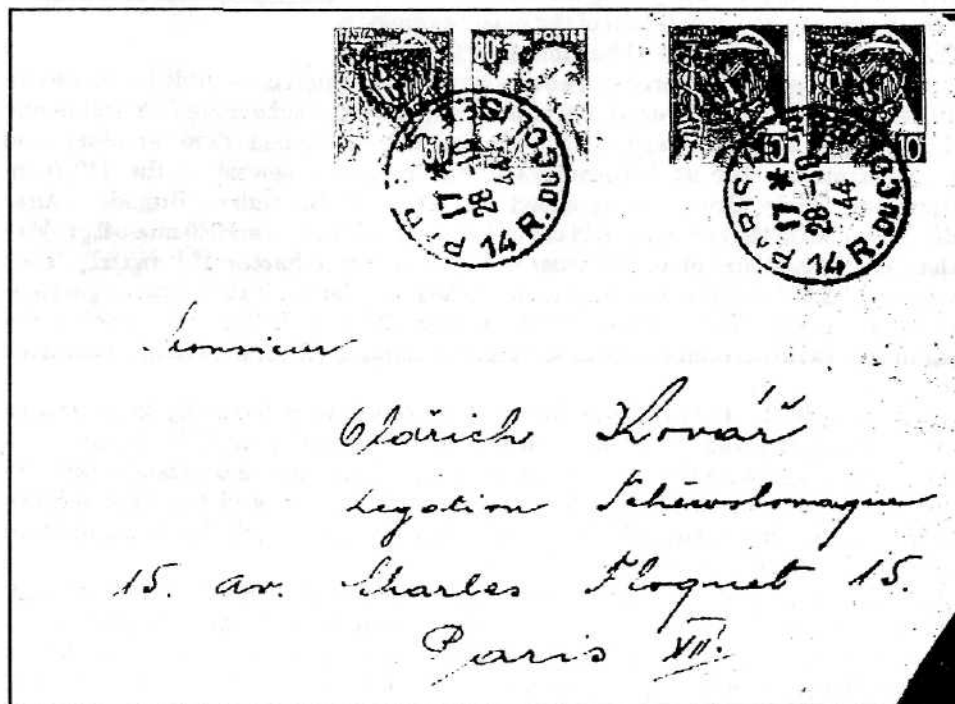 POSTES
PARIS 17 * 28-10 44 14 R. DUCO
PARIS 17 * 28-10 44 14 R. DUCO
Monsieur
Oldřich Kovář
Legation Tchéwslovaque
15. av. Charles Floquet 15.
Paris VII.